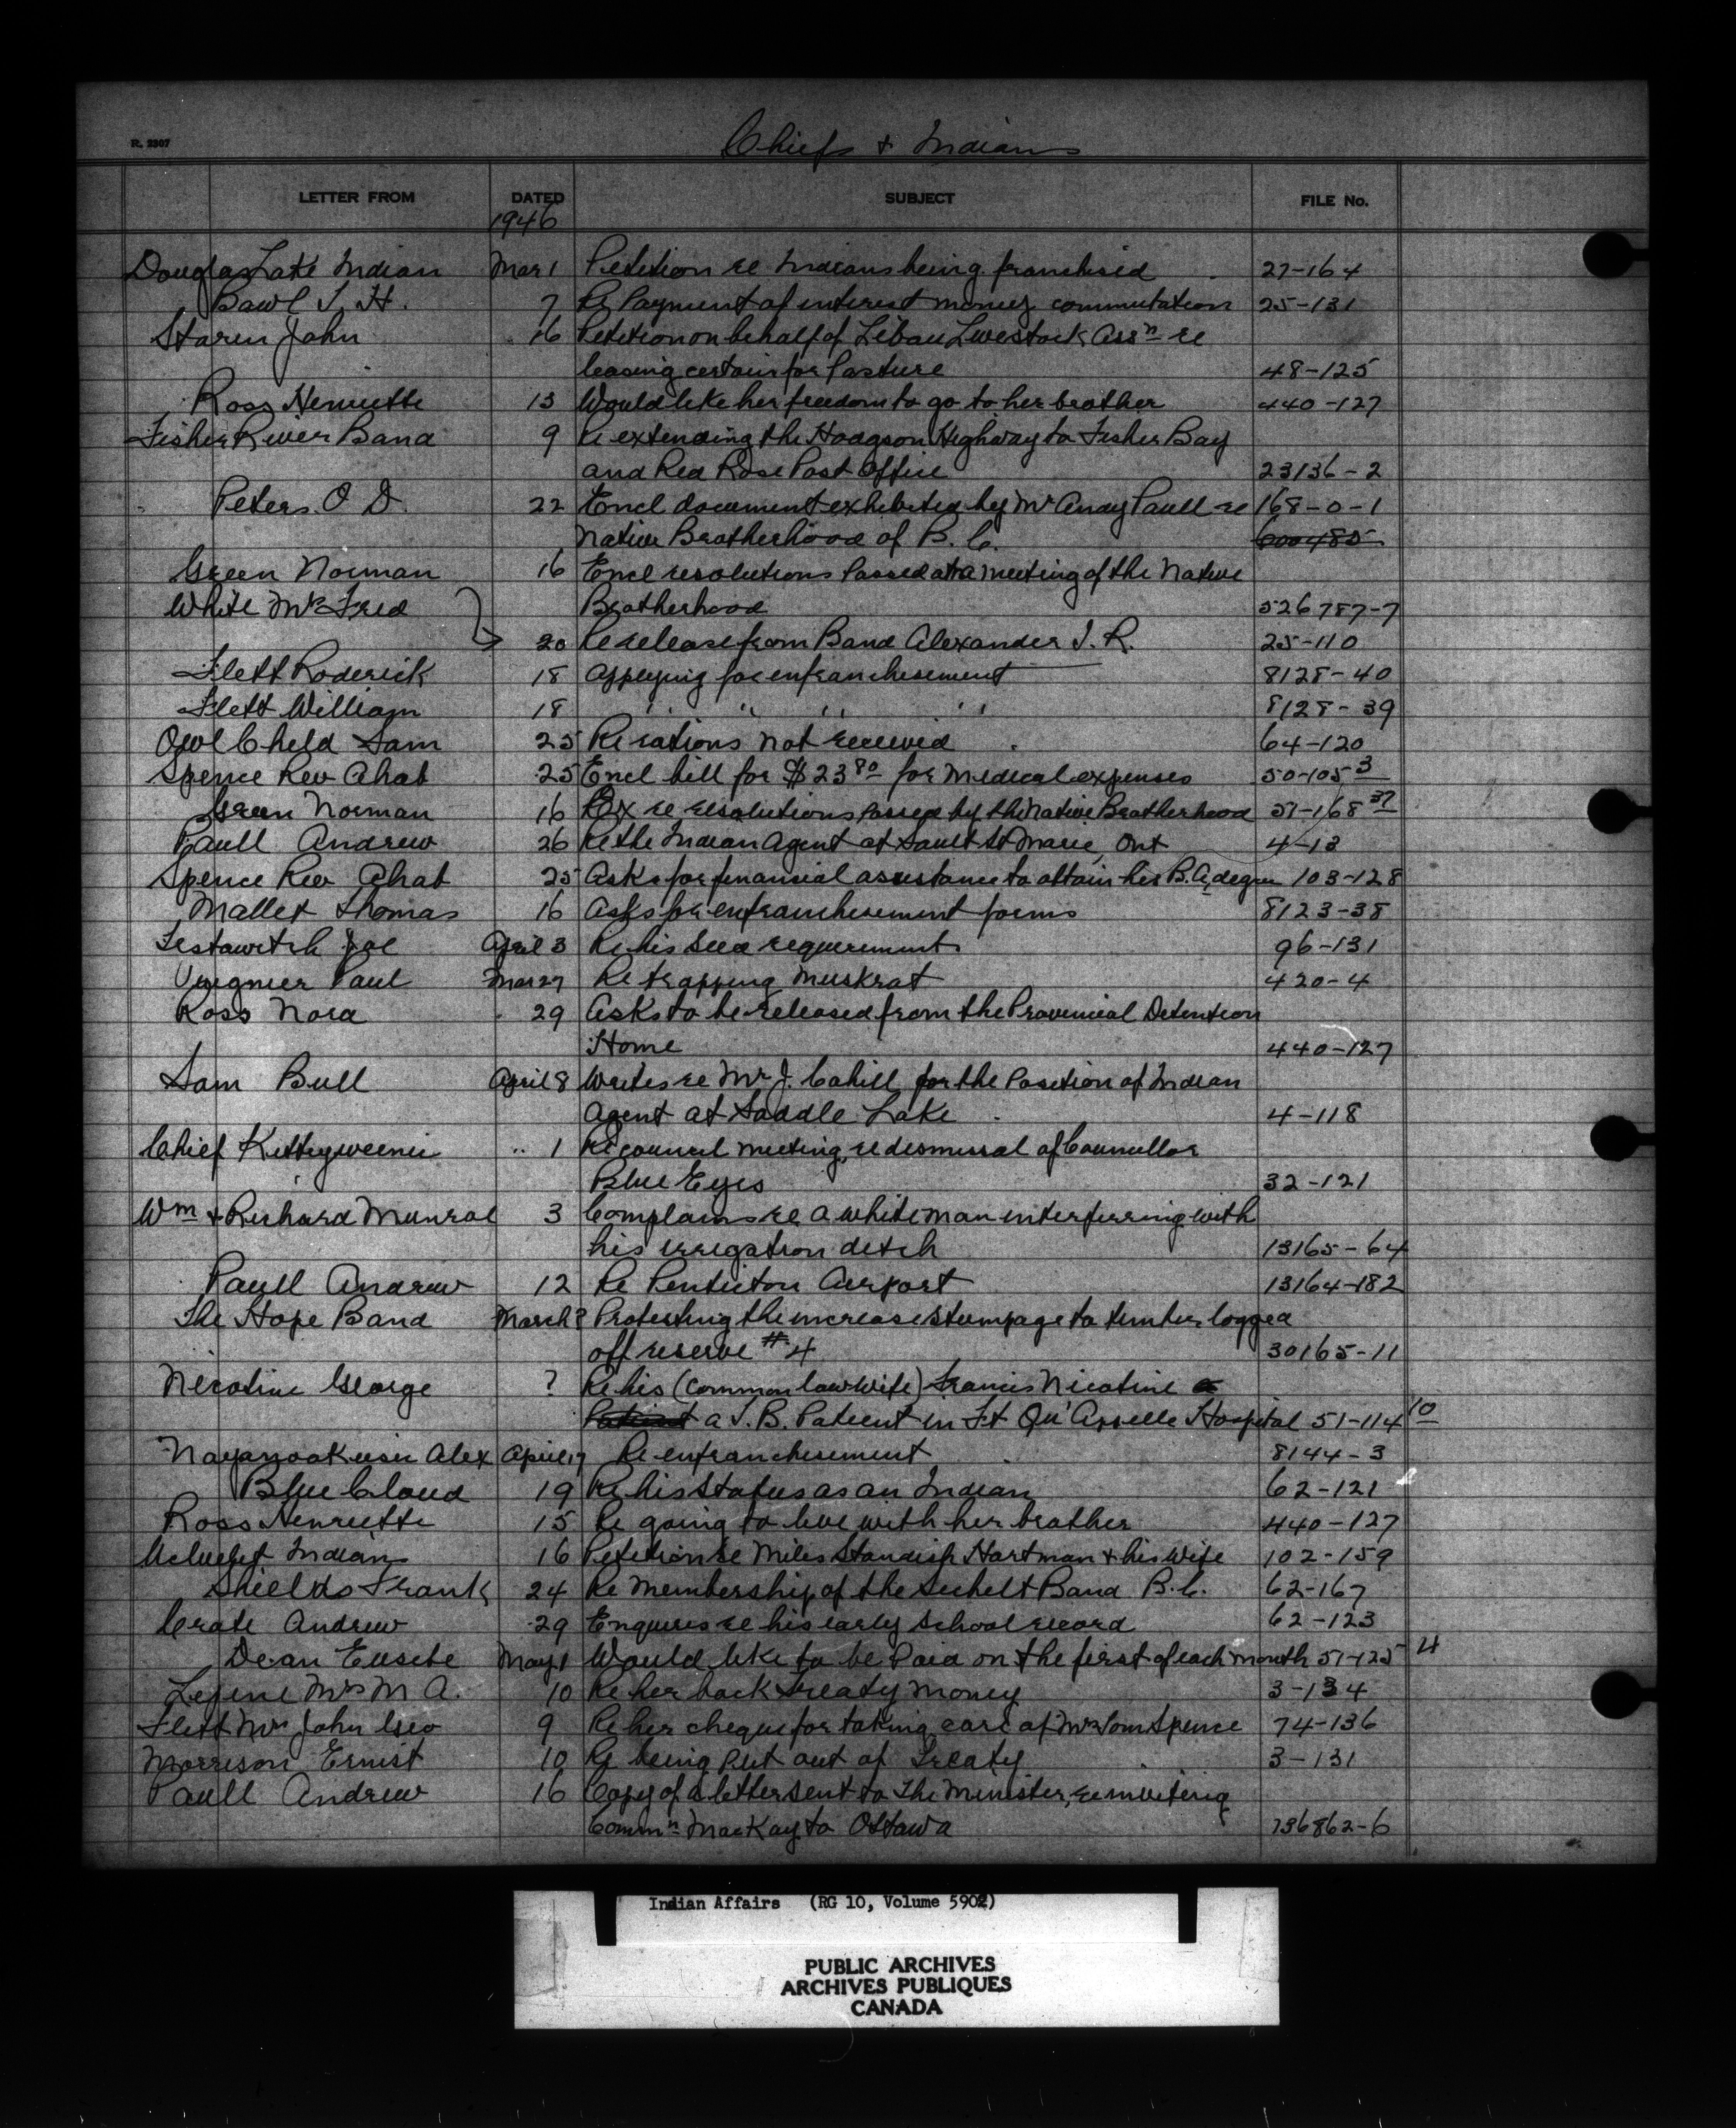 R. 2307
Chiefs & Indians
LETTER FROM DATED SUBJECT FILE No.
1946
Douglas Lake Indian Mar 1 Petition re Indians being franchised 27-164
Bawl J. H. 7 Re Payment of interest money commutation 25-131
Staren John 16 Petition on behalf of Libau Livestock Assn re
leasing certain for Pasture 48-125
Ross Henriette 13 Would like her freedom to go to her brother 440-127
Fisher River Band 9 Re extending the Hodgson Highway to Fisher Bay
and Red Rose Post Office 23136-2
Peters O D. 22 Encl document exhibited by Mr Andy Paull re 168-0-1
Native Brotherhood of B. C. 600485
Green Norman 16 Encl resolutions Passed at a meeting of the Native
White Mrs Fred Brotherhood 526787-7
20 Re release from Band Alexander I. R. 25-110
Flett Roderick 18 Applying for enfranchisement 8128-40
Flett William 18 " " " " 8128-39
Owl Child Sam 25 Re rations not received 64-120
Spence Rev Ahab 25 Encl bill for $23 80 for Medical expenses 50-105 3
Green Norman 16 re resolutions passed by the Native Brotherhood 51-168 37
Paull Andrew 26 Re the Indian Agent at Sault St Marie, Ont 4-13
Spence Rev Ahab 25 Asks for financial assistance to attain his B.A. degree 103-128
Mallet Thomas 16 Asks for enfranchisement forms 8123-38
Testawitch Joe April 3 Re his Seed requirements 96-131
Paul Mar 27 Re trapping Muskrat 420-4
Ross Nora 29 Asks to be released from the Provincial Detention
Home 440-127
Sam Bull April 8 Writes re Mr J. Cahill for the Position of Indian
Agent at Saddle Lake 4-118
Chief .. 1 Re council meeting, re dismissal of Councillor
Blue Eyes 32-121
Wm & Richard Munral 3 Complains re a white man interferring with
his irrigation ditch 13165-64
Paull Andrew 12 Re Penticton Airport 13164-182
The Hope Band March ? Protesting the increase stumpage to timber logged
off reserve #4 30165-11
Nicotine George ? Re his (common law wife) Francis Nicotine
Patient a T.B. Patient in Ft Qu'Appelle Hospital 51-114 10
Alex April 17 Re enfranchisement 8144-3
Blue Cloud 19 Re his Status as an Indian 62-121
Ross Henriette 15 Re going to live with her brother 440-127
Ucluelet Indians 16 Petition re Miles Standish Hartman & his Wife 102-159
Shields Frank 24 Re Membership of the Sechelt Band B.C. 62-167
Crate Andrew 29 Enquires re his early School record 62-123
Dean Eusebe May 1 Would like to be Paid on the first of each month 51-125 4
Lepine Mrs M A. 10 Re her back treaty money 3-134
Flett Mrs John Geo 9 Re her cheque for taking care of Mrs Tom Spence 74-136
Morrison Ernist 10 Re being put out of Treaty 3-131
Paull Andrew 16 Copy of a letter sent to The Minister, re inviting
Commn MacKay to Ottawa 736862-6
Indian Affairs (RG 10, Volume 5902)
PUBLIC ARCHIVES
ARCHIVES PUBLIQUES
CANADA